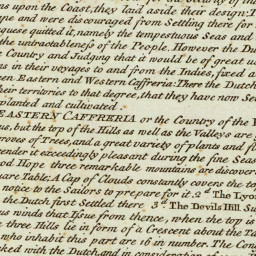 ns upon the Coast, they laid aside the design. T
ape and were discouraged from Settling there for
uguese quitted it, namely the tempestuous Seas and
the untractableness of the People. However the Du
e Country and Judging that it would be of great u
s in their voyages to and from the Indies, fixed a
een Eastern and Western Caffreria: There the Dutch
their territories to that degree, that they have now Se
planted and cultivated.
EASTERN CAFFRERIA or the Country of the
us, but the top of the Hills as well as the Valleys are
roves of Trees, and a great variety of plants and fl
render it exceedingly pleasant during the fine Seas
od Hope three remarkable mountains are discover
uare Table: A Cap of Clouds constantly covers the top
notice to the Sailors to prepare for it. 2.d The Lyon
the Dutch first Settled there 3.d The Devils Hill Su
us winds that Issue from thence, when the top is
e three Hills lie in form of a Crescent about the Ta
who inhabit this part are 16 in number. The Con
ked with the Dutch, and in consideration of